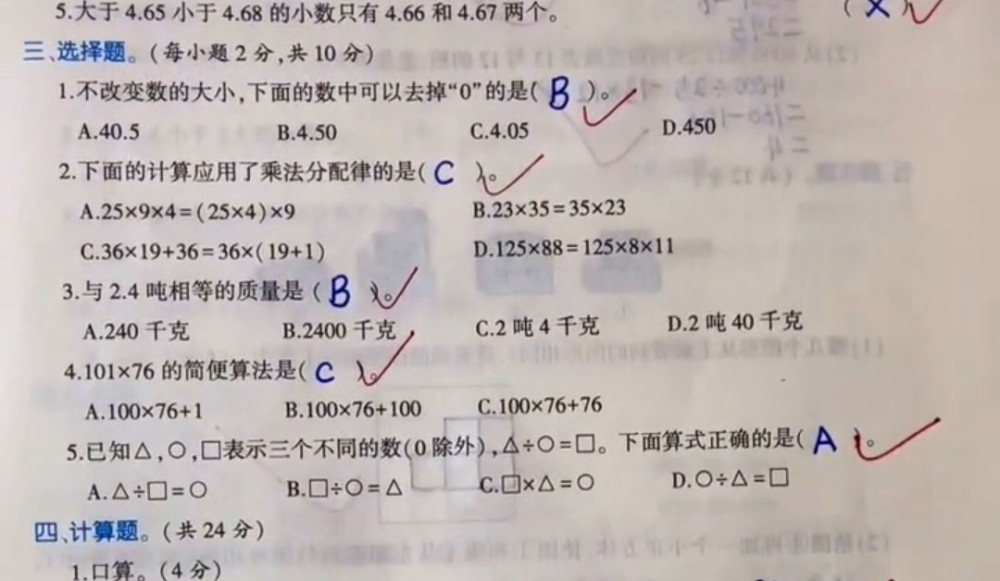 5.大于 4.65 小于 4.68 的小数只有 4.66 和 4.67 两个。 (×)
三、选择题。(每小题 2 分,共 10 分)
1.不改变数的大小,下面的数中可以去掉“0”的是( B )。
A.40.5 B.4.50 C.4.05 D.450
2.下面的计算应用了乘法分配律的是( C )。
A.25×9×4=(25×4)×9 B.23×35=35×23
C.36×19+36=36×(19+1) D.125×88=125×8×11
3.与 2.4 吨相等的质量是( B )。
A.240 千克 B.2400 千克 C.2 吨 4 千克 D.2 吨 40 千克
4.101×76 的简便算法是( C )。
A.100×76+1 B.100×76+100 C.100×76+76
5.已知△,○,□表示三个不同的数(0 除外),△÷○=□。下面算式正确的是( A )。
A.△÷□=○ B.□÷○=△ C.□×△=○ D.○÷△=□
四、计算题。(共 24 分)
1.口算。(4 分)